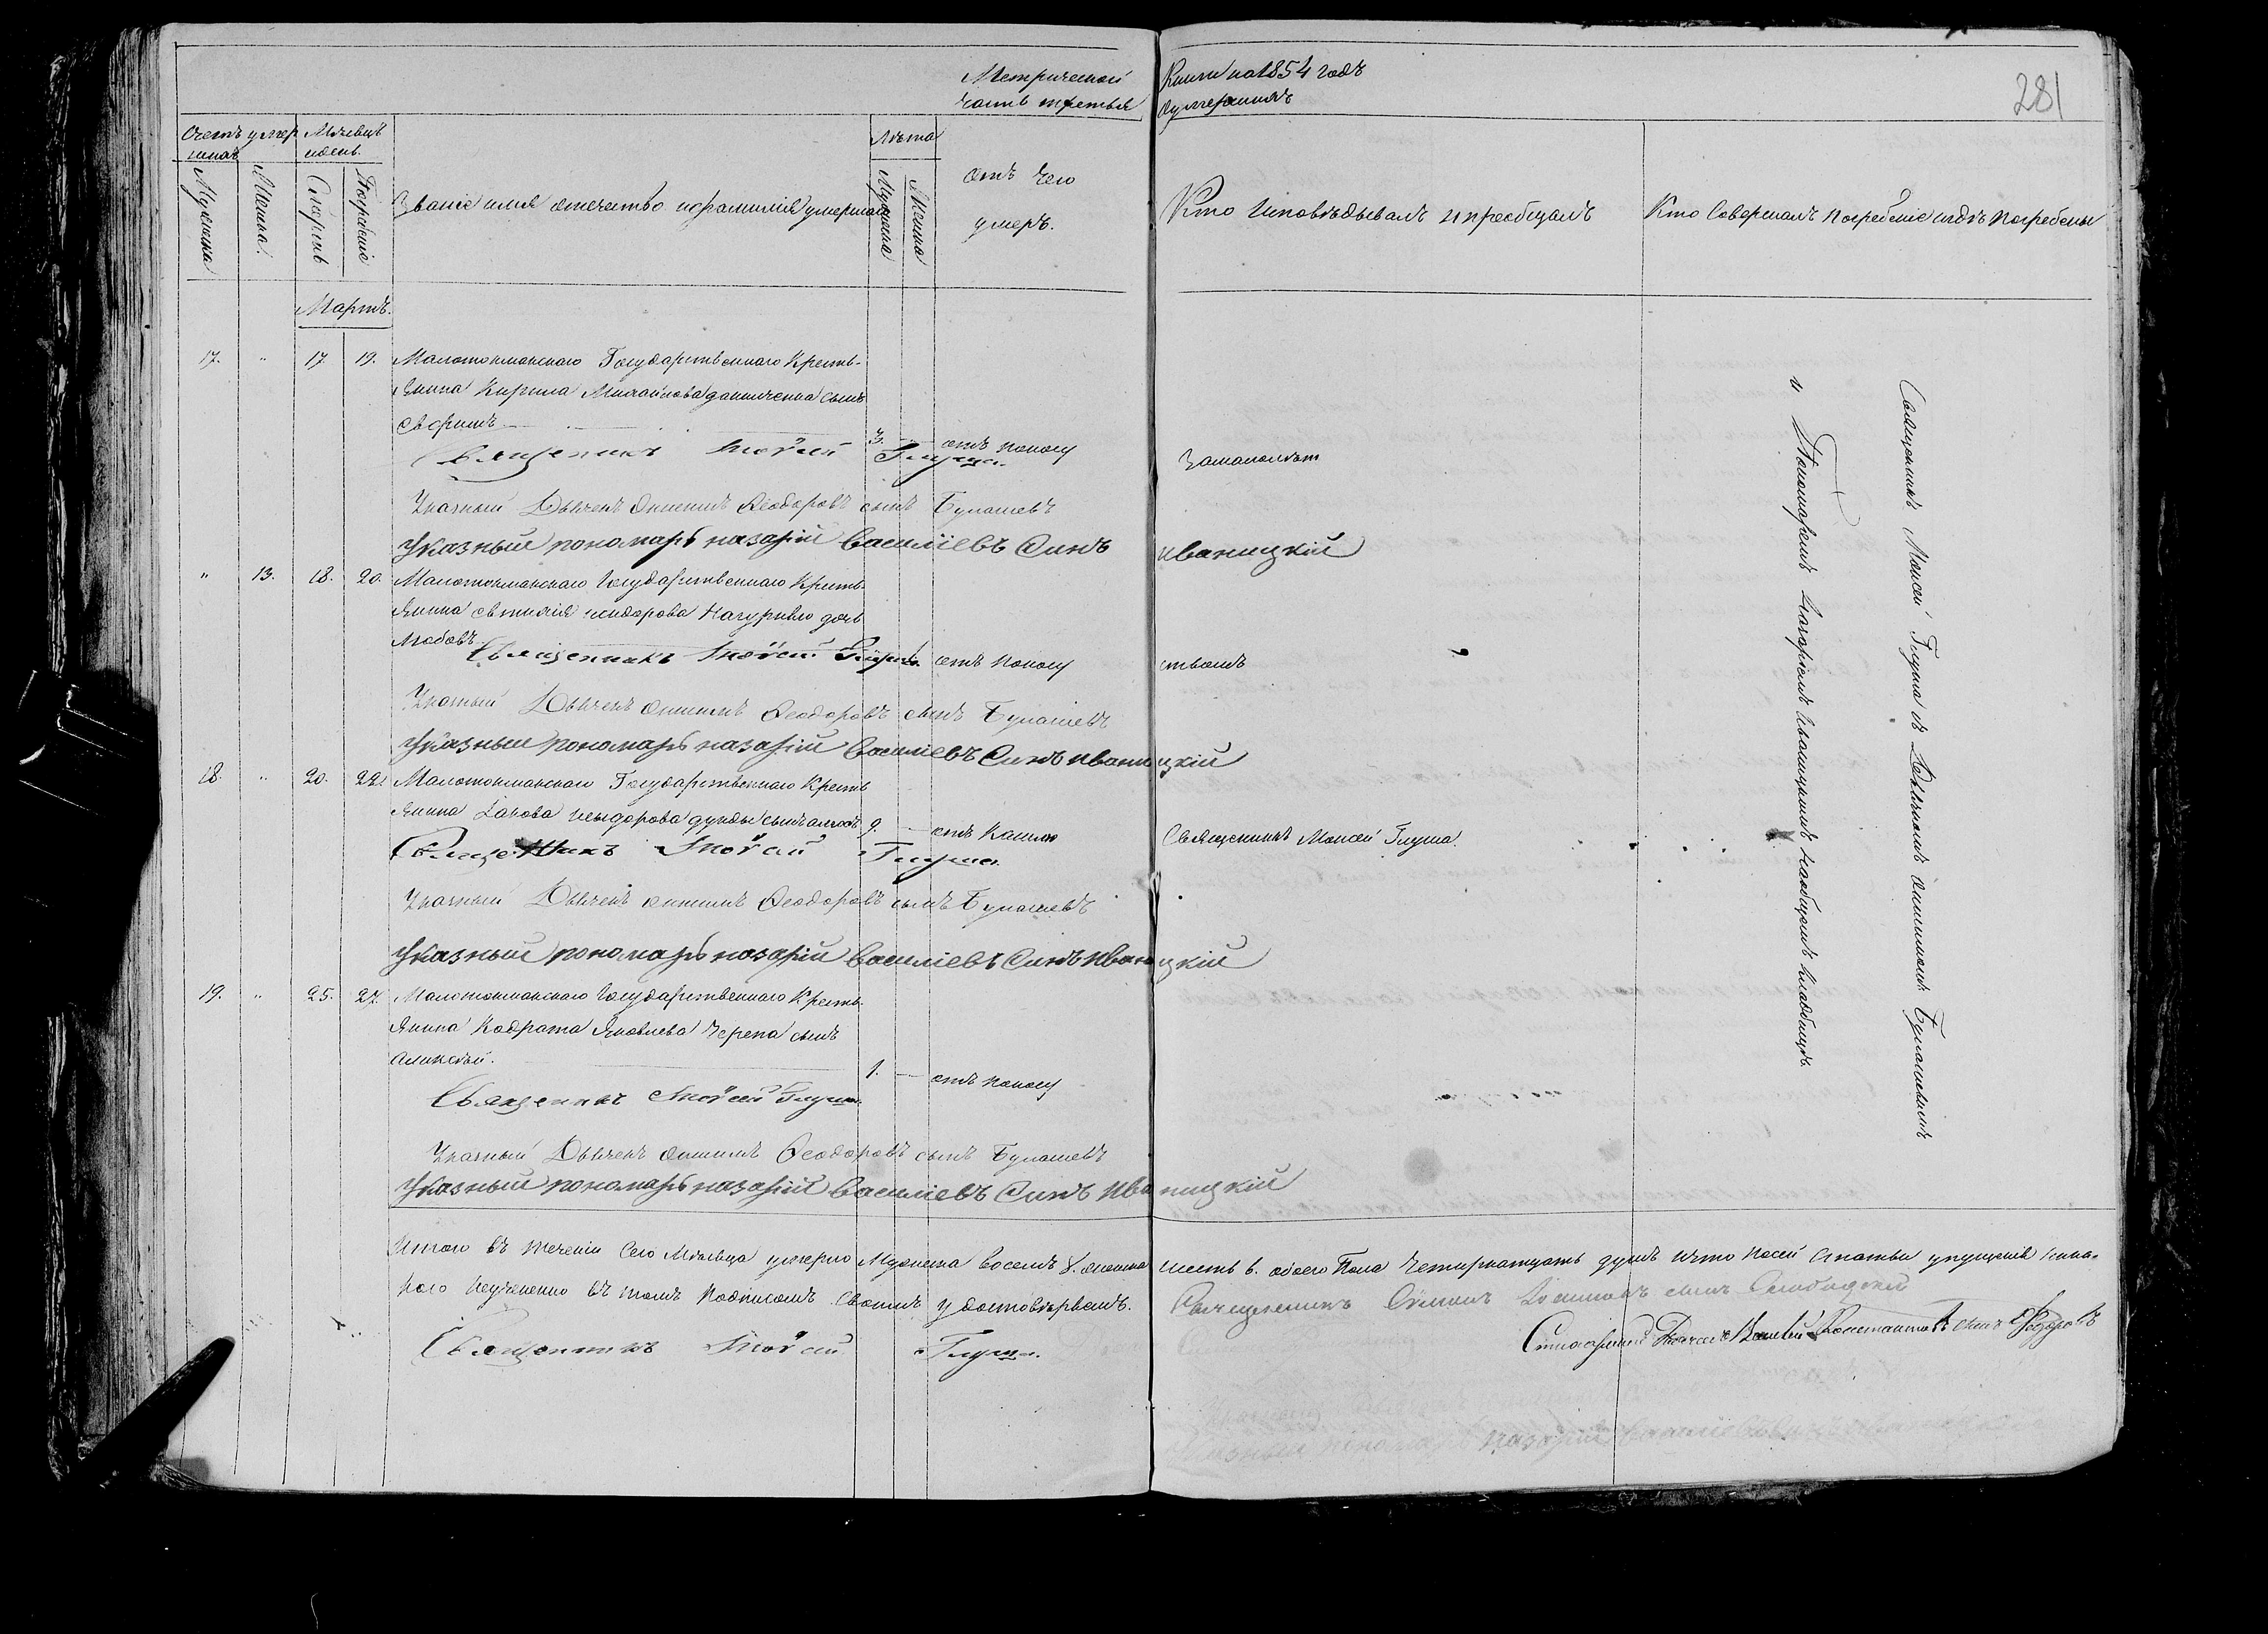 Метрической Книги на 1854 годъ
281
часть третья о умершихъ
Счетъ умер
шихъ
Мѣсецъ
и день.
Лѣта
Мужеска
Женска.
Смерть
Погребеніе
Званіе имя отечество и фамилія умершаго
Мужеска
Женска
Отъ чего
умеръ.
Кто Исповѣдывалъ и преобщалъ
Кто Совершалъ погребеніе и гдѣ погребены
Мартъ.
17. " 17 19. Малотокмакскаго Государственнаго Кресть-
янина Кирила Михайлова сынъ
Ефримъ 3. — отъ поносу
Священникъ Моѵсей Глуша.
За малолѣт
Указный Дьячекъ Онисимъ Ѳеодоровъ сынъ Булашевъ
Указный пономарь назарій василіевъ Синъ иваницкій
" 13. 18. 20. Малотокмакскаго Государственнаго Кресть-
янина исидорова дочь
Любовъ отъ поносу
ствомъ
Священникъ Моѵсей Глуша.
Указный Дьячекъ Онисимъ Ѳеодоровъ сынъ Булашевъ
Указный пономарь назарій василіевъ Синъ иваницкій
18. " 20. 22. Малотокмакскаго Государственнаго Кресть
янина Іакова исидорова дунды сынъ 9. — отъ кашлю
Священникъ Моисей Глуша.
Священникъ Моѵсей Глуша.
Указный Дьячекъ Онисимъ Ѳеодоровъ сынъ Булашевъ
Указный пономарь назарій василіевъ Синъ иваницкій
19. " 25. 27. Малотокмакскаго Государственнаго Кресть-
янина Кодрата Яковлева Черепа сынъ
Аликсѣй. 1. — отъ поносу
Священникъ Моѵсей Глуша.
Указный Дьячекъ Онисимъ Ѳеодоровъ сынъ Булашевъ
Указный пономарь назарій василіевъ Синъ иваницкій
Священникъ Моисей Глуша съ Дьячкомъ Онисимомъ Булашевымъ
и Пономаремъ Назаріемъ Иваницкимъ на общемъ кладбищѣ.
Итого въ теченіи сего Мѣсъеца умерло Мужеска восемъ 8. женска шесть 6. обоего Пола Четирнатцать душъ и что посей статьи упущенія ника-
кого неучинено въ томъ подписомъ своимъ удостовѣряемъ.
Священникъ Сѵмеонъ Іоанновъ сынъ
Священникъ Моѵсей Глуша.